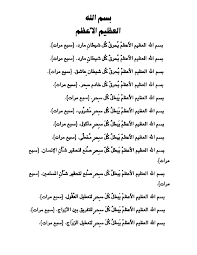 بسم الله
العظيم الاعظم
بسم الله العظيم الأعظم يُحرق كُل شيطان مارد. (سبع مرات).
بسم الله العظيم الأعظم يُحرق كُل شيطان مارد. (سبع مرات).
بسم الله العظيم الأعظم يُحرق كُل شيطان عاشق. (سبع مرات).
بسم الله العظيم الأعظم يُحرق كُل خادم سِحر. (سبع مرات).
بسم الله العظيم الأعظم يُبطل كُل سِحر. (سبع مرات).
بسم الله العظيم الأعظم يُبطل كُل سِحر مشرُوب. (سبع مرات).
بسم الله العظيم الأعظم يُبطل كُل سِحر مأكول. (سبع مرات).
بسم الله العظيم الأعظم يُبطل كُل سِحر مُتخطَّى. (سبع مرات).
بسم الله العظيم الأعظم يُبطل كُل سِحر صُنع لتحقير شأن الإنسان. (سبع
مرات).
بسم الله العظيم الأعظم يُبطل كُل سِحر صُنع لتحقير شأن الصالحين. (سبع
مرات).
بسم الله العظيم الأعظم يُبطل كُل سِحر لتعطيل العُقُول. (سبع مرات).
بسم الله العظيم الأعظم يُبطل كُل سِحر لتفريق بين الأزواج. (سبع مرات).
بسم الله العظيم الأعظم يُبطل كُل سِحر لتعطيل الزواج. (سبع مرات).